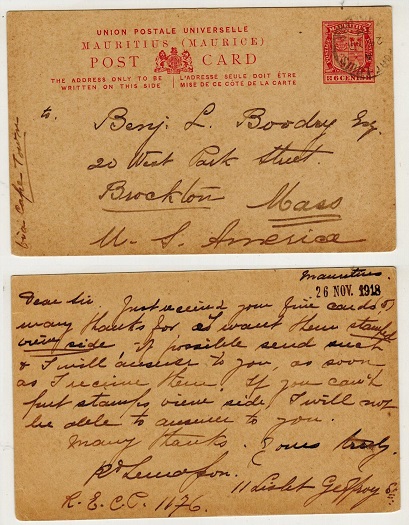 UNION POSTALE UNIVERSELLE
MAURITIUS (MAURICE)
POST CARD
THE ADDRESS ONLY TO BE WRITTEN ON THIS SIDE
L'ADRESSE SEULE DOIT ÊTRE MISE DE CE CÔTÉ DE LA CARTE
MAURITIUS
6 CENTS
to.
Benj. L. Boodry Esq.
20 West Park Street.
Brockton Mass
U. S. America
via Cape Town
Mauritius.
26 NOV. 1918
Dear Sir Just received your fine cards &
many thanks for. I want them stamped
view side. If possible send such
& I will answer to you, as soon
as I receive them. If you can't
put stamps view side, I will not
be able to answer to you.
Many thanks. Yours truly.
11 Lislet Geffroy St.
R. E. C. P. 1176.